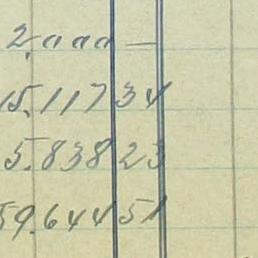 2,000 —
15,117 34
5,838 23
59,644 51